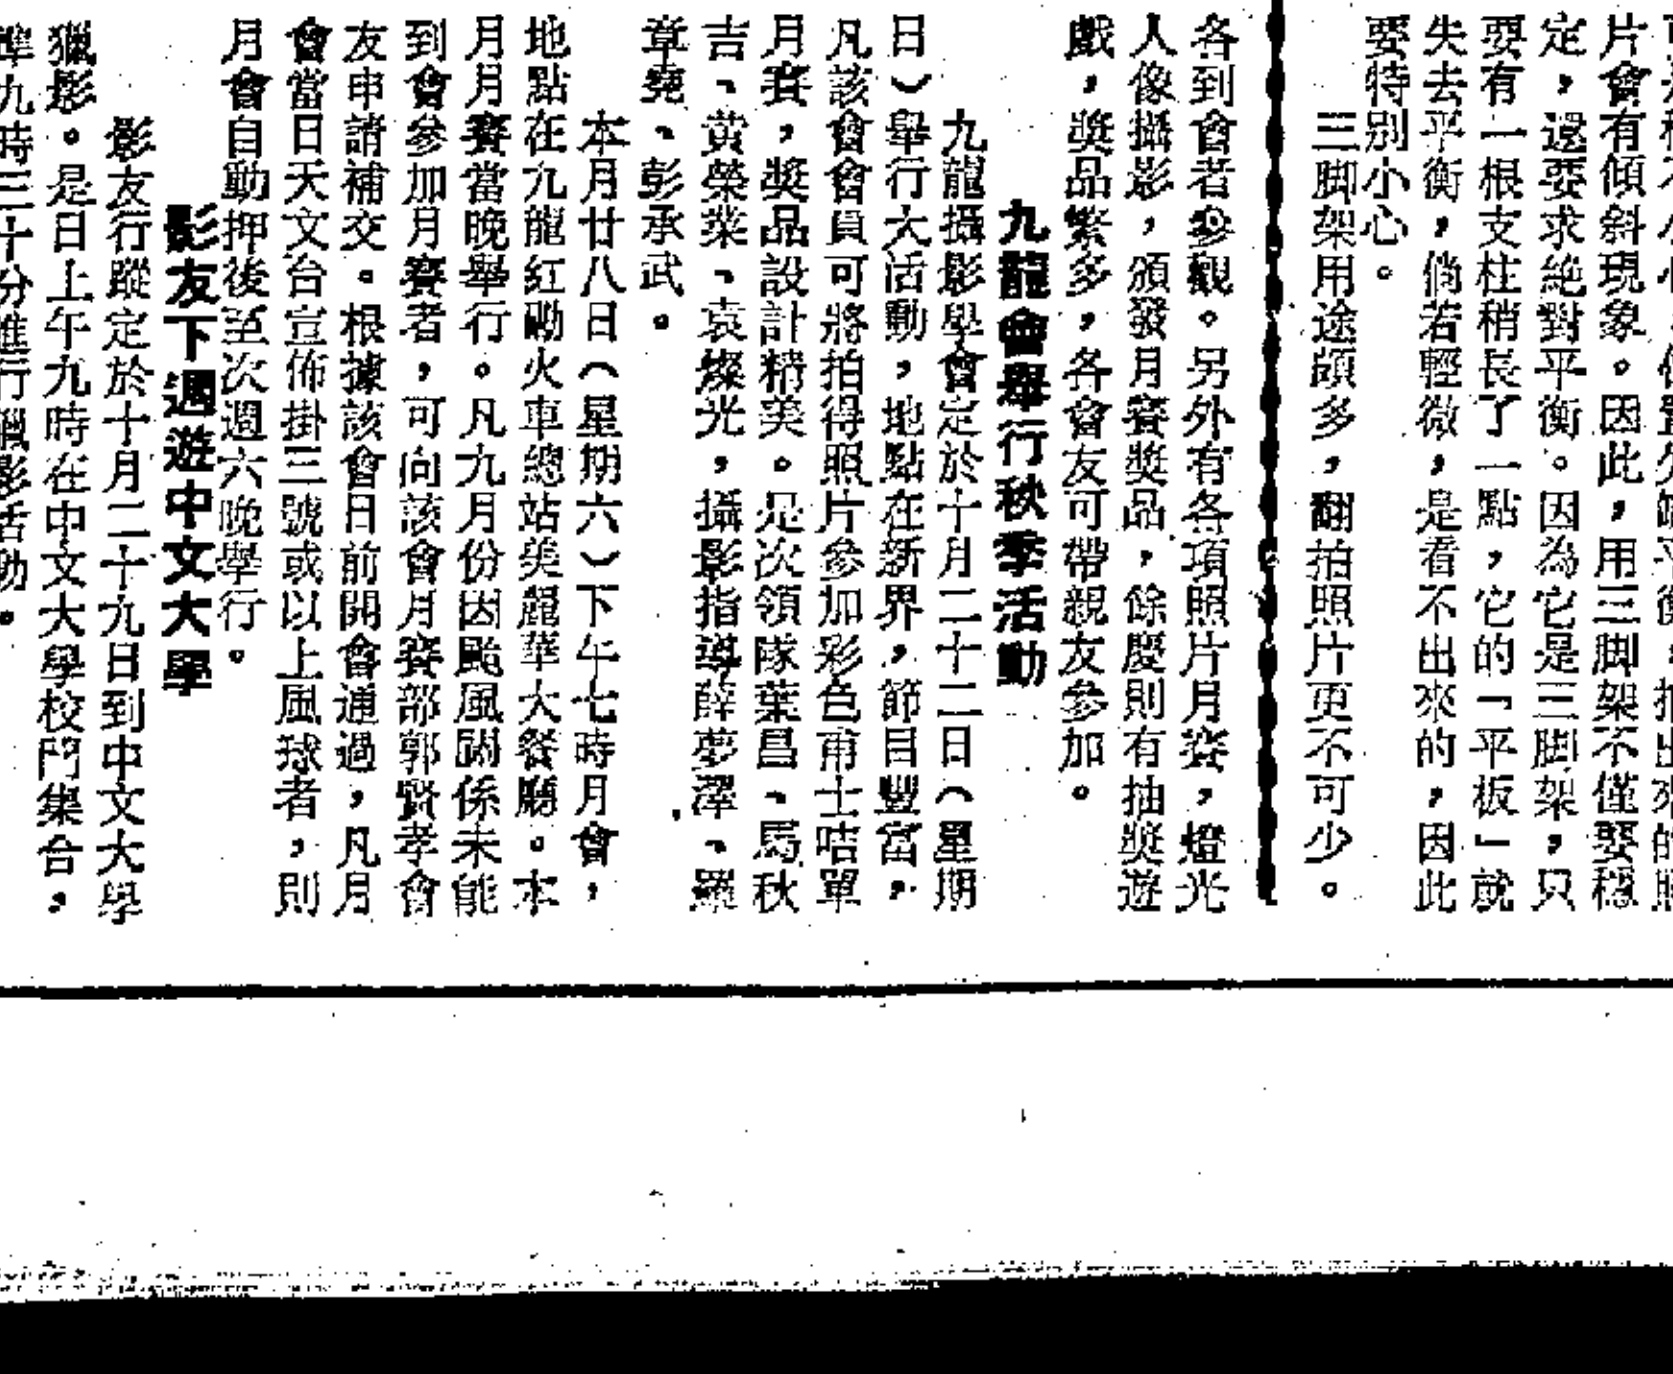 片會有傾斜現象。因此，用三脚架不僅要穩
定，還要求絕對平衡。因為它是三脚架，只
要有一根支柱稍長了一點，它的「平板」就
失去平衡，倘若輕微，是看不出來的，因此
要特別小心。
三脚架用途頗多，翻拍照片更不可少。
各到會者參觀。另外有各項照片月賽，燈光
人像攝影，頒發月賽獎品，餘慶則有抽獎遊
戲，獎品繁多，各會友可帶親友參加。
九龍會舉行秋季活動
九龍攝影學會定於十月二十二日（星期
日）舉行大活動，地點在新界，節目豐富，
凡該會會員可將拍得照片參加彩色甫士咭單
月賽，獎品設計精美。是次領隊葉昌、馬秋
吉、黃榮業、袁燦光，攝影指導薛夢澤、羅
章堯、彭承武。
本月廿八日（星期六）下午七時月會，
地點在九龍紅磡火車總站美麗華大餐廳。本
月月賽當晚舉行。凡九月份因颱風關係未能
到會參加月賽者，可向該會月賽部郭賢孝會
友申請補交。根據該會日前開會通過，凡月
會當日天文台宣佈掛三號或以上風球者，則
月會自動押後至次週六晚舉行。
影友下週遊中文大學
影友行蹤定於十月二十九日到中文大學
獵影。是日上午九時在中文大學校門集合，
準九時三十分進行獵影活動。